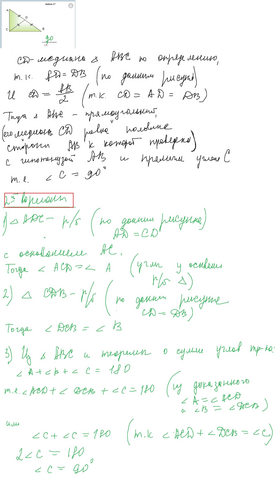 90
CD-медиана △ ABC по определению,
т.к. AD=DB (по данным рисунка)
И CD = AB/2 (т.к. CD = AD = DB)
Тогда △ ABC - прямоугольный,
(его медиана CD равна половине
стороны AB к которой проведена)
с гипотенузой AB и прямым углом C
т.е. ∠C = 90°
2) вариант
1) △ ADC - р/б (по данным рисунка
AD = CD)
с основанием AC.
Тогда ∠ACD = ∠A (углы у основан
р/б △)
2) △ CDB - р/б (по данным рисунка
CD = DB)
Тогда ∠DCB = ∠B
3) Из △ ABC и теоремы о сумме углов тр-ка:
∠A + ∠B + ∠C = 180
т.е. ∠ACD + ∠DCB + ∠C = 180 (из доказанного
∠A = ∠ACD
∠B = ∠DCB)
или
∠C + ∠C = 180 (т.к. ∠ACD + ∠DCB = ∠C)
2∠C = 180
∠C = 90°